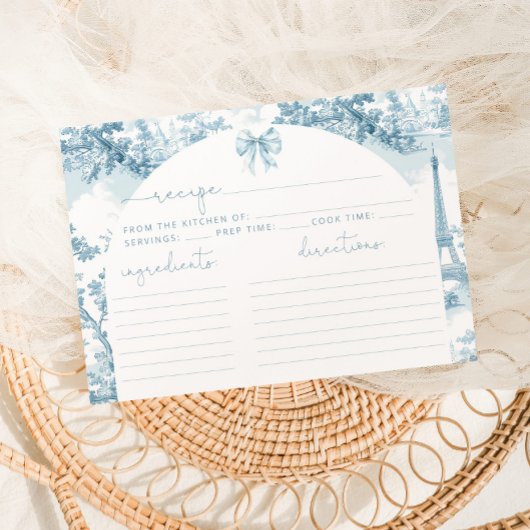 recipe
FROM THE KITCHEN OF:
SERVINGS: PREP TIME: COOK TIME:
ingredients: directions: